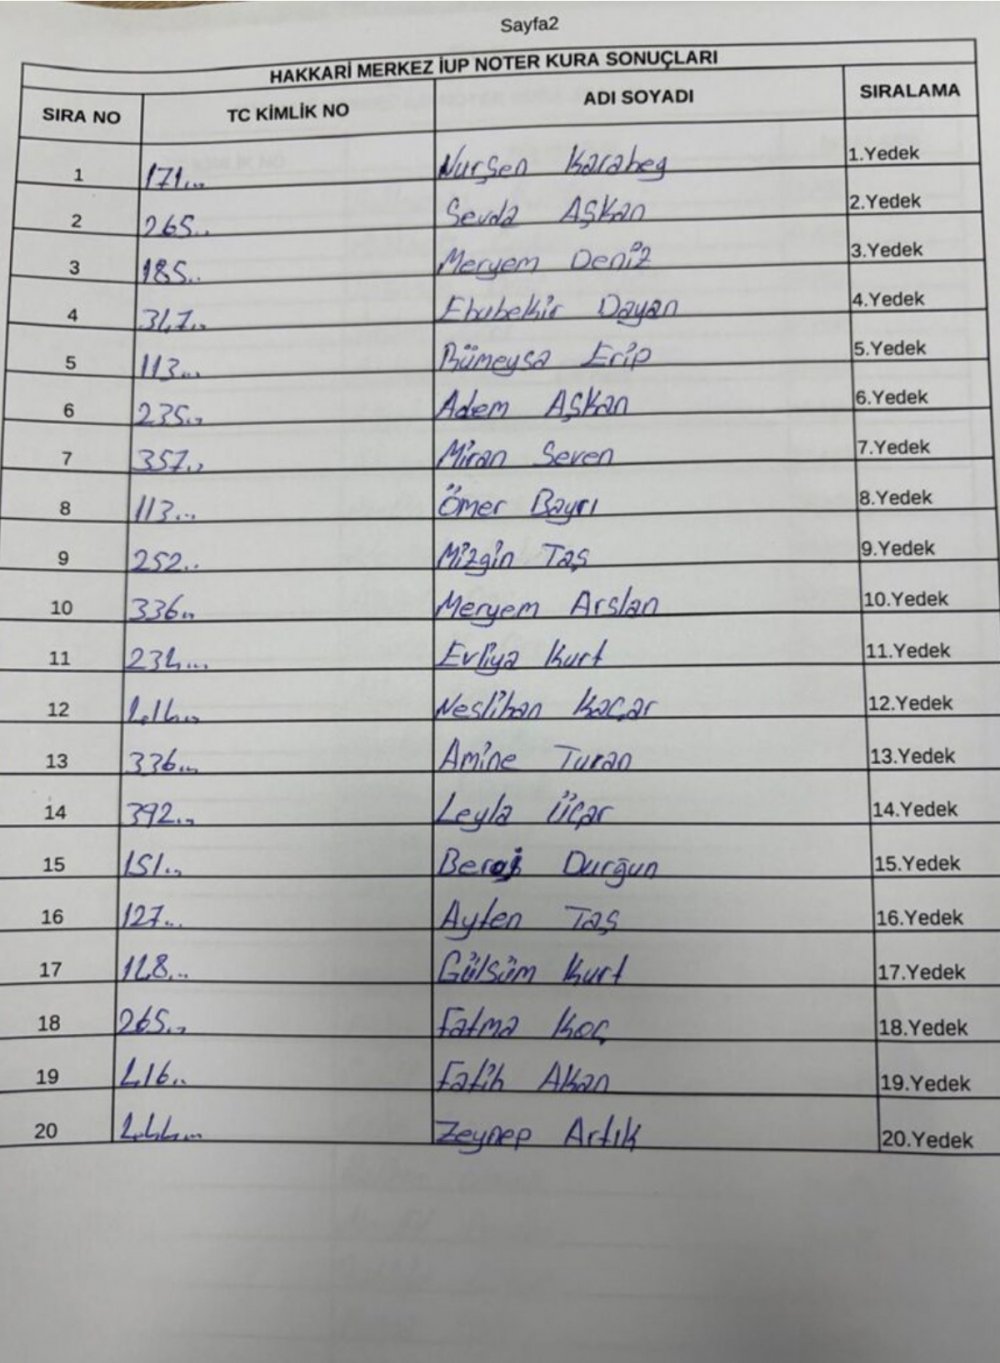 Sayfa2
HAKKARİ MERKEZ İUP NOTER KURA SONUÇLARI
SIRA NO TC KİMLİK NO ADI SOYADI SIRALAMA
1 171... Nurşen Karabeg 1.Yedek
2 265.. Sevda Aşkan 2.Yedek
3 185.. Meryem Deniz 3.Yedek
4 347.. Ebubekir Dayan 4.Yedek
5 113... Rümeysa Erip 5.Yedek
6 235.. Adem Aşkan 6.Yedek
7 357.. Miran Seven 7.Yedek
8 113... Ömer Bayrı 8.Yedek
9 252.. Mizgin Taş 9.Yedek
10 336.. Meryem Arslan 10.Yedek
11 234... Evliya Kurt 11.Yedek
12 Neslihan Kaçar 12.Yedek
13 336... Amine Turan 13.Yedek
14 392.. Leyla Üçar 14.Yedek
15 151.. Durğun 15.Yedek
16 127... Ayten Taş 16.Yedek
17 Gülsüm Kurt 17.Yedek
18 265.. Fatma Koç 18.Yedek
19 416.. Fatih Akan 19.Yedek
20 Zeynep Artık 20.Yedek